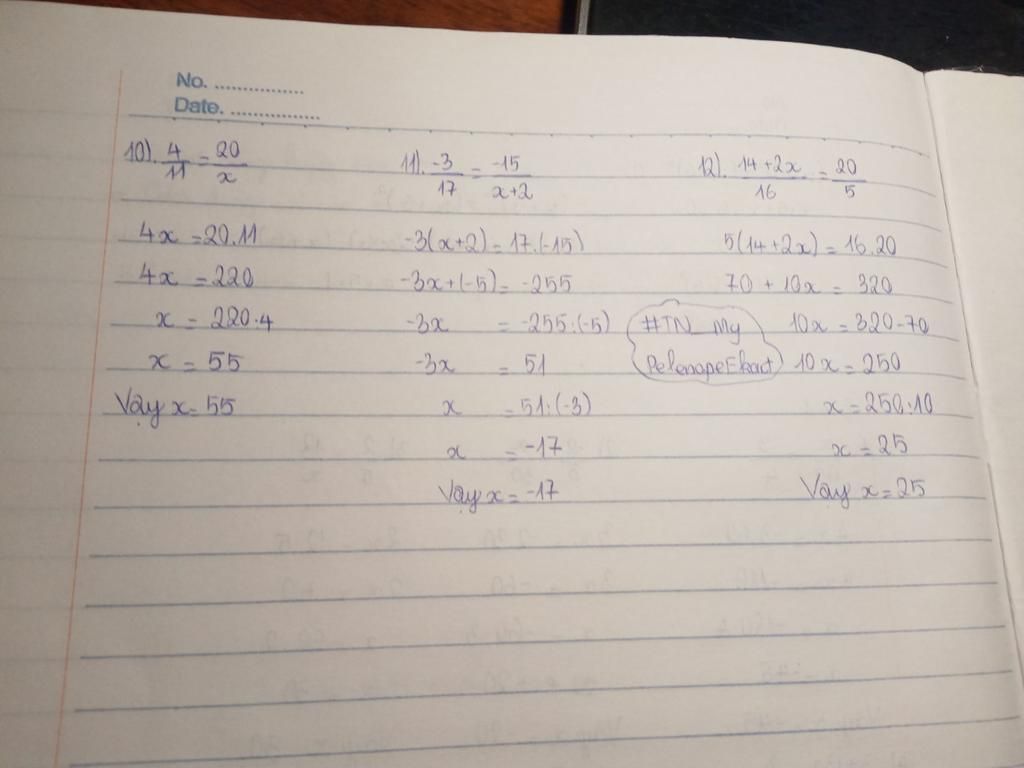 No. ..................
Date. ..................
10). 4/11 = 20/x
4x = 20.11
4x = 220
x = 220:4
x = 55
Vậy x = 55
11). -3/17 = -15/x+2
-3(x+2) = 17.(-15)
-3x+(-5) = -255
-3x = -255:(-5)
-3x = 51
x = 51:(-3)
x = -17
Vậy x = -17
12). 14+2x/16 = 20/5
5(14+2x) = 16.20
70 + 10x = 320
10x = 320-70
10x = 250
x = 250:10
x = 25
Vậy x = 25
#TN_My